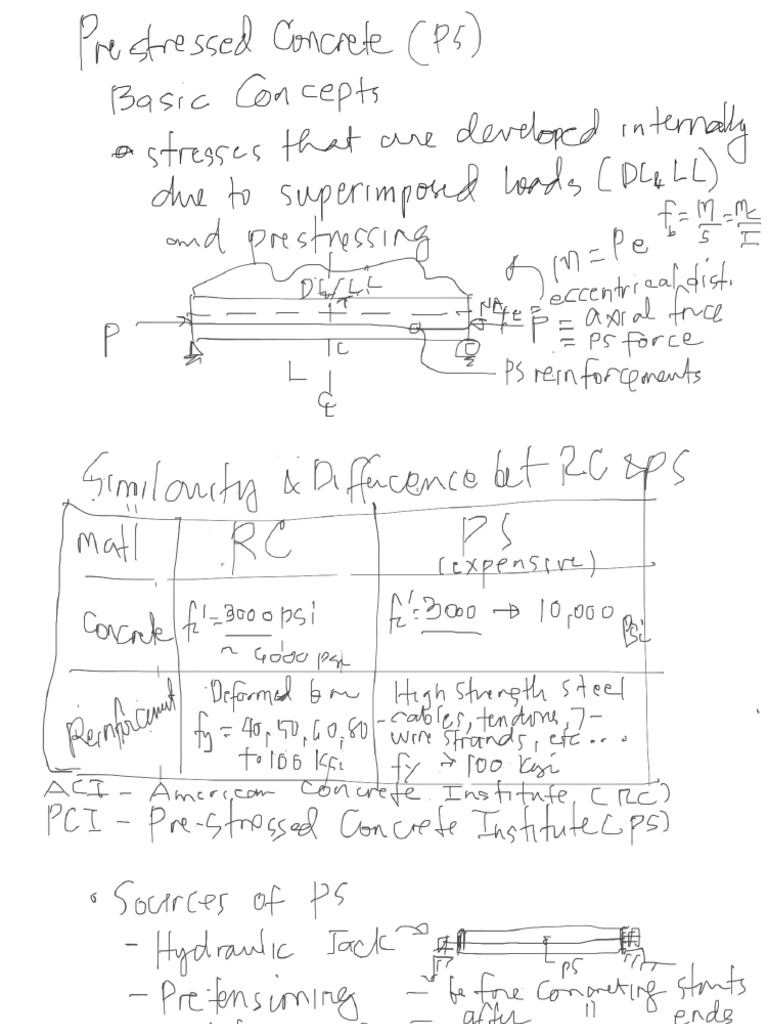 Prestressed Concrete (PS)
Basic Concepts
stresses that are developed internally
due to superimposed loads (DL & LL)
and prestressing
f_b = M/S = Mc/I
M = Pe
eccentrical dist.
DL/LL
T
NA
e
P
P = axial force
= PS force
C
L
℄
PS reinforcements
Similarity & Difference bet RC & PS
Matl
RC
PS
(expensive)
Concrete
fc' = 3000 psi
~ 4000 psi
fc' = 3000 → 10,000 psi
Reinforcement
Deformed bar
fy = 40, 50, 60, 80
to 100 ksi
High strength steel
- cables, tendons, 7-
wire strands, etc...
fy → 100 ksi
ACI - American Concrete Institute (RC)
PCI - Pre-stressed Concrete Institute (PS)
• Sources of PS
- Hydraulic Jack
PS
- Pretensioning - before concreting starts
after " ends